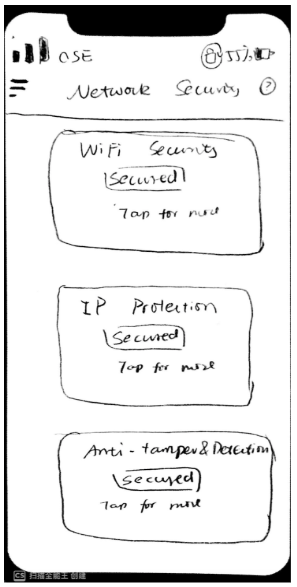 CSE 55%
Network Security ?
WiFi Security
Secured
Tap for more
IP Protection
Secured
Tap for more
Anti-tamper & Detection
Secured
Tap for more
CS 扫描全能王 创建